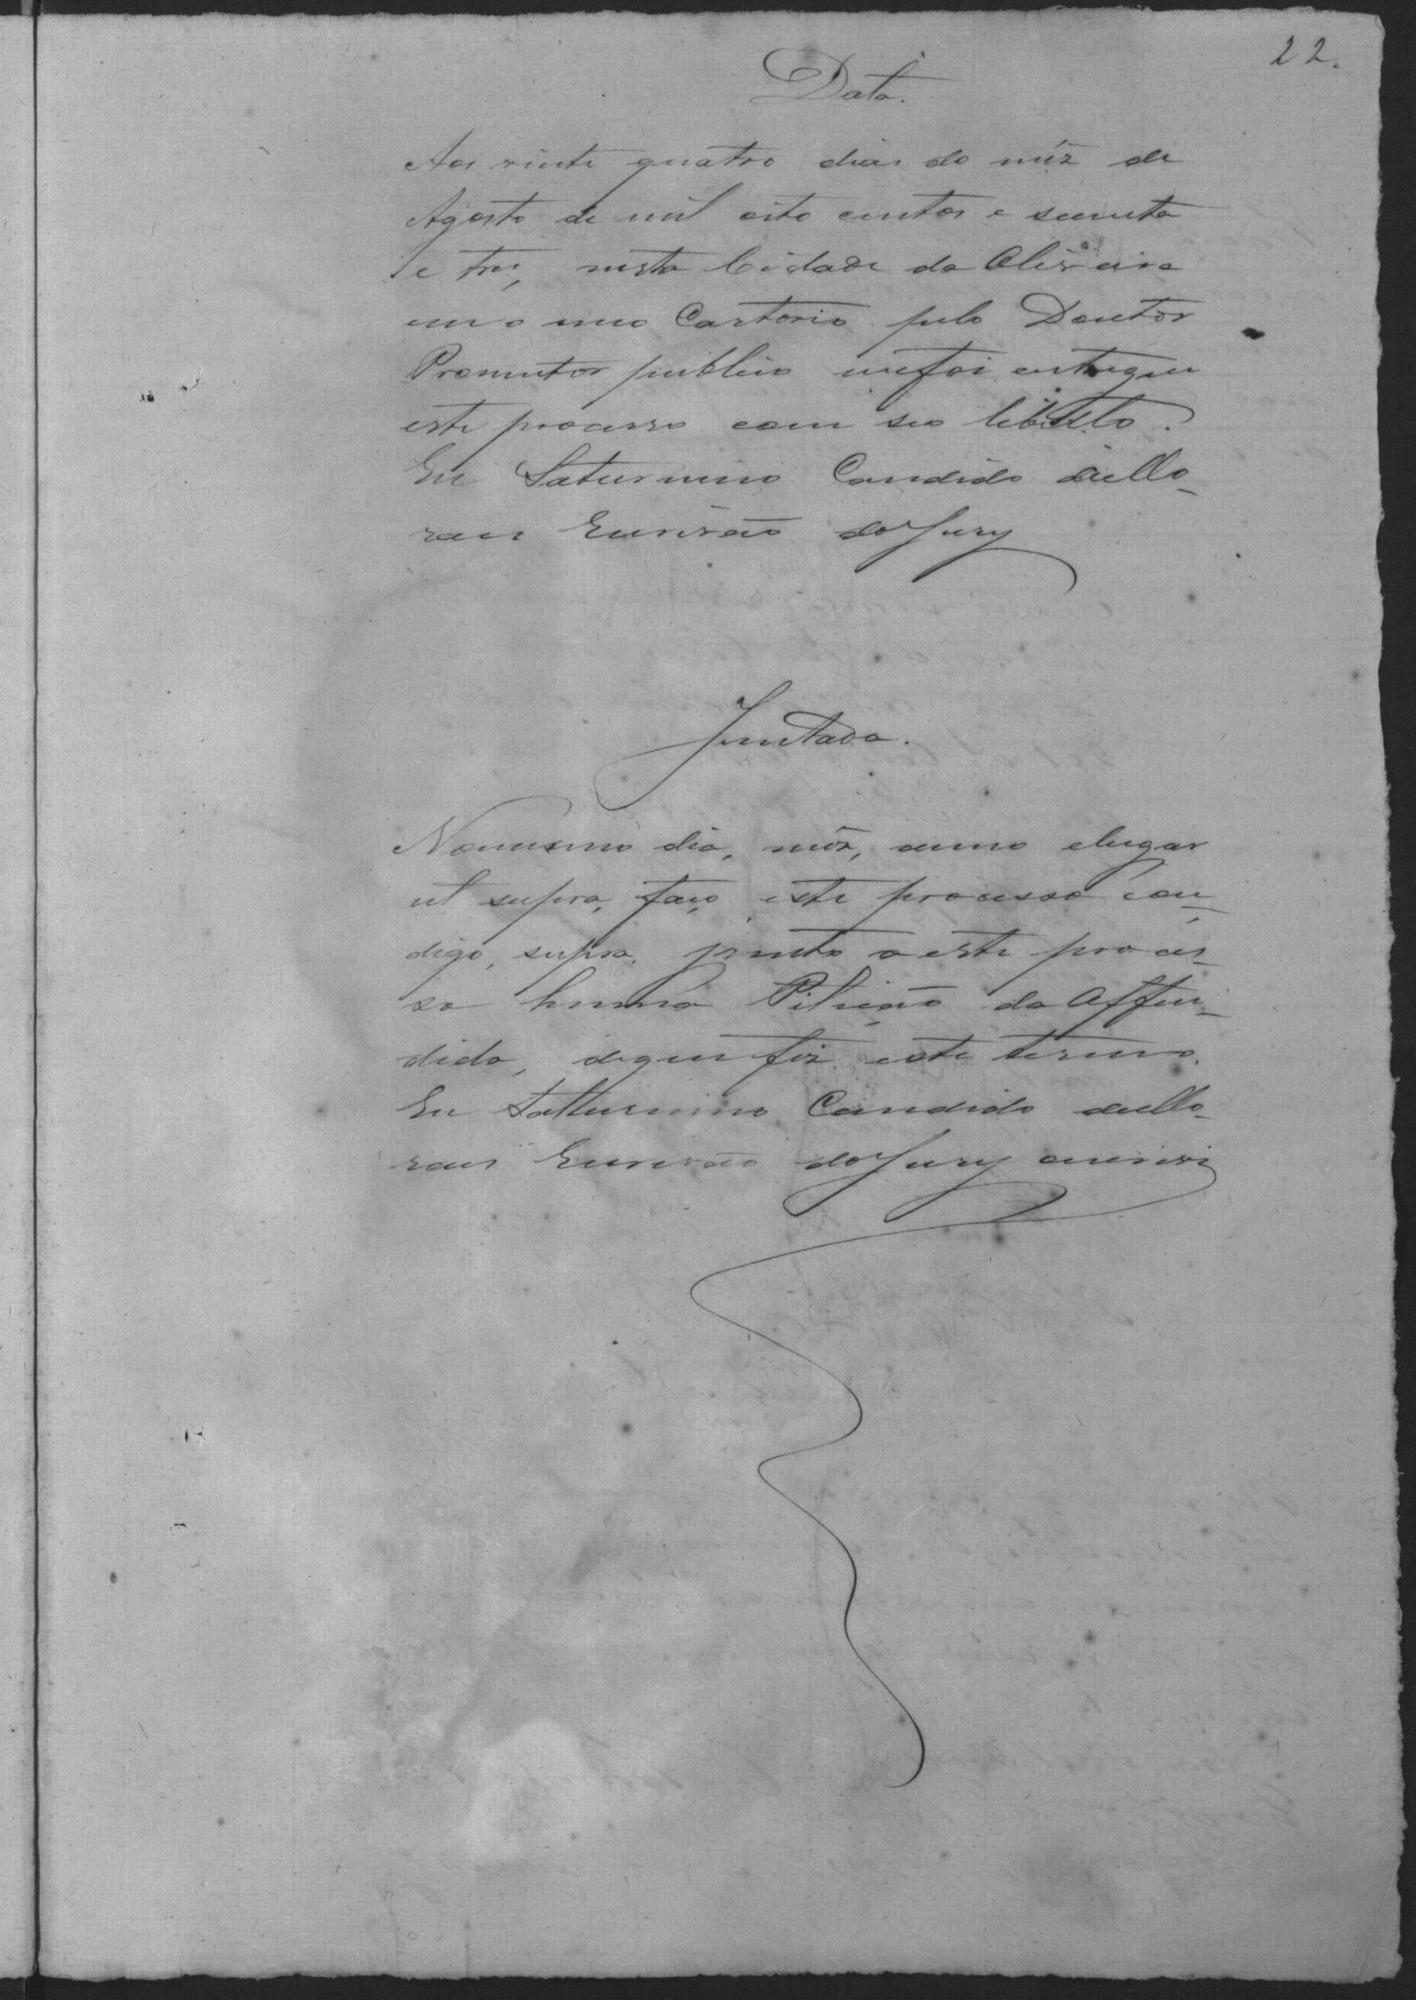 22.
Data.
Aos vinte quatro dias do mêz de
Agosto de mil oito centos e secenta
e trez, nesta Cidade da Oliveira
em o meo Cartorio pelo Doutor
Promutor publico mefoi entregue
este processo com seo libello.
Eu Saturnino Candido deMo-
raes Escrivão doJury
Juntada.
Nomesmo dia, mêz, anno elugar
ut supra, faço este processo con-
digo, supra, junto a este proces-
so huma Petição do Affen-
dido, dequefiz este termo.
Eu Satturnino Candido deMo-
raes Escrivão doJury oescrivi